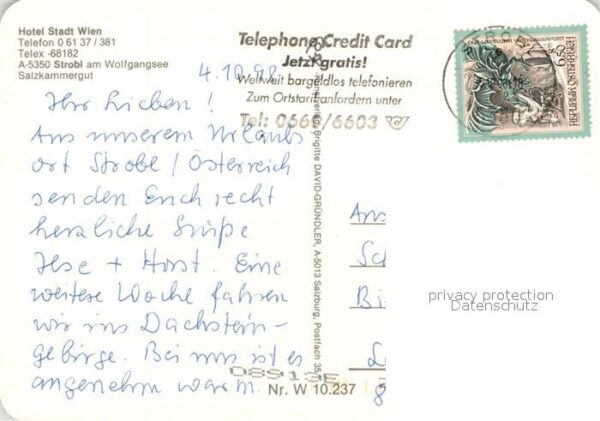 Hotel Stadt Wien
Telefon 0 61 37 / 381
Telex -68182
A-5350 Strobl am Wolfgangsee
Salzkammergut
Telephone Credit Card
Jetzt gratis!
Weltweit bargeldlos telefonieren
Zum Ortstarif anfordern unter
Tel: 0660/6603
STROBL
REPUBLIK ÖSTERREICH
4.10.98
Ihr Lieben !
Aus unserem Urlaubs
ort Strobl / Österreich
senden Euch recht
herzliche Grüße
Ilse + Horst. Eine
weitere Woche fahren
wir ins Dachstein-
gebirge. Bei uns ist es
angenehm warm.
Brigitte DAVID-GRÜNDLER, A-5013 Salzburg, Postfach 35
Nr. W 10.237
privacy protection
Datenschutz